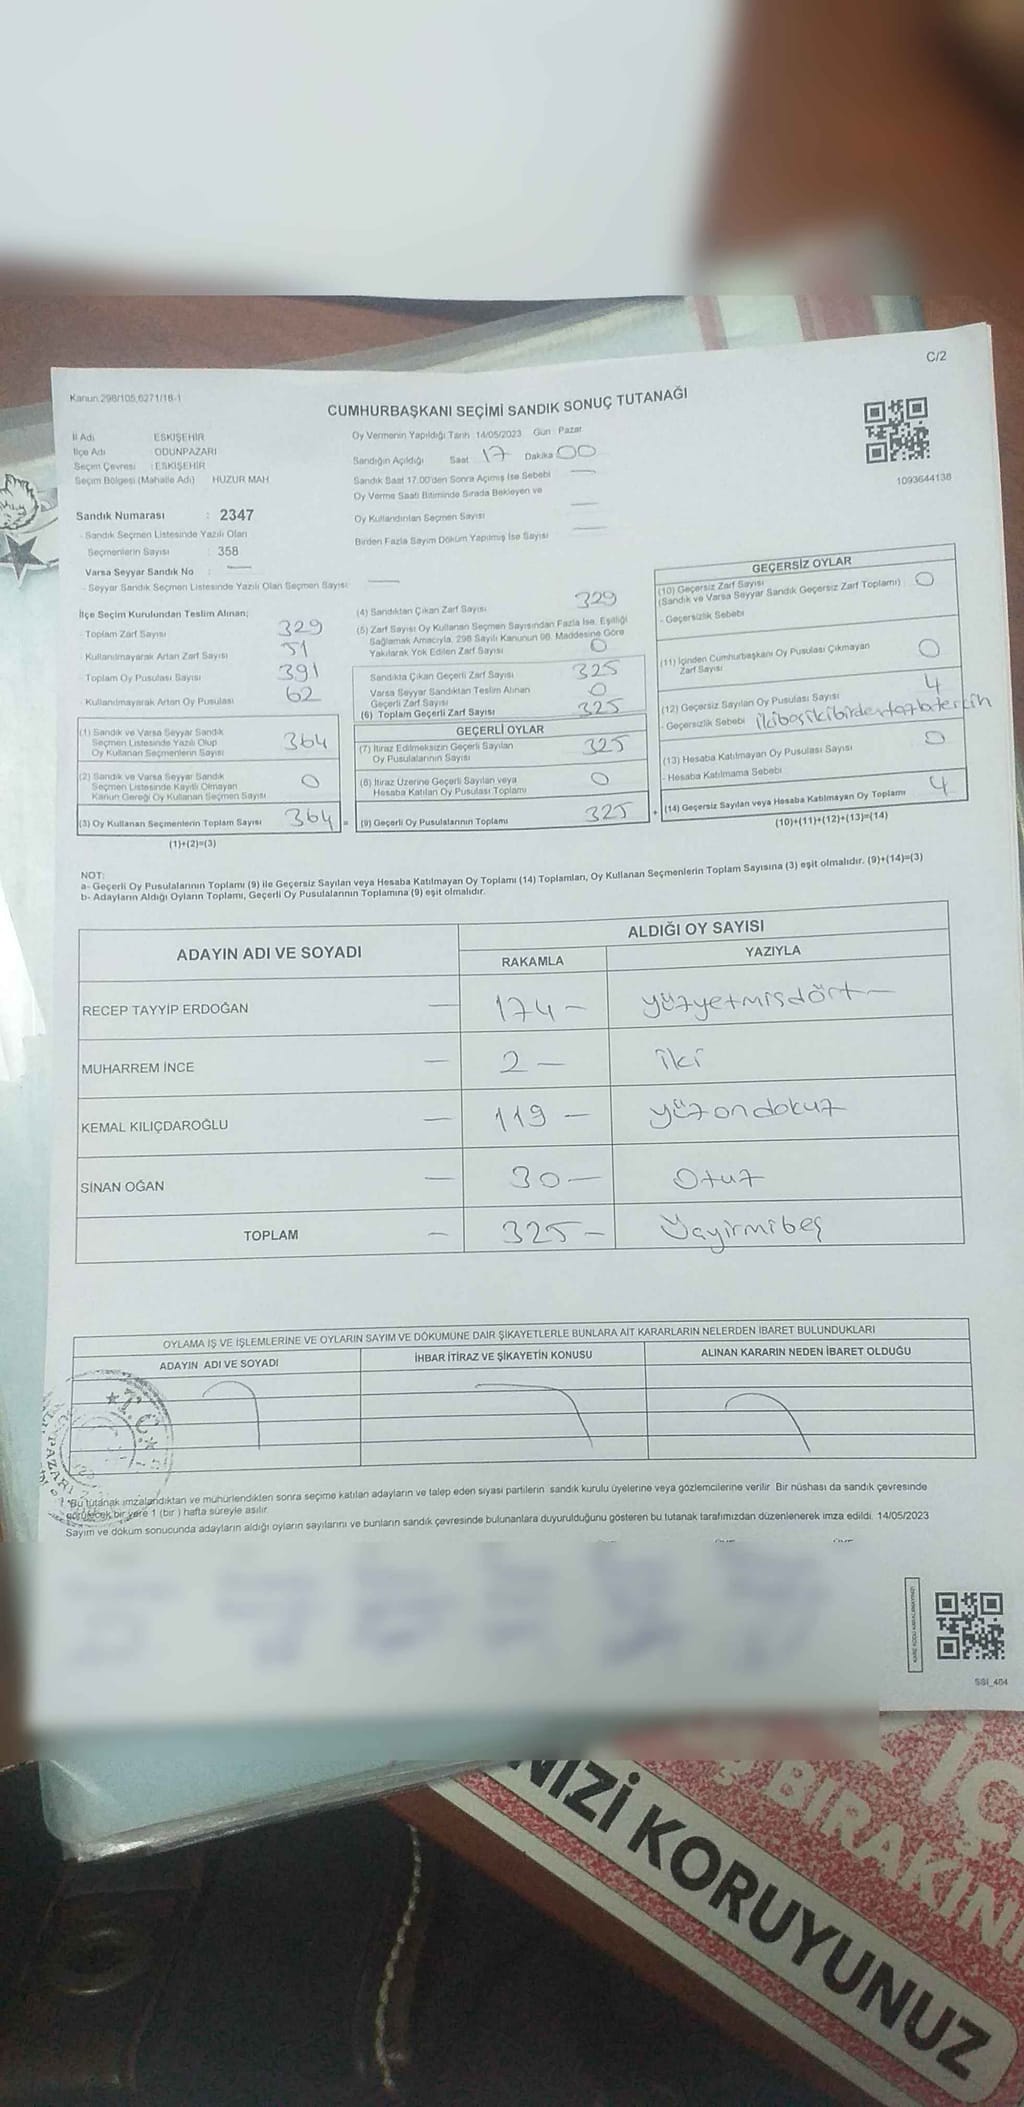 C/2
Kanun:298/105,6271/18-1
CUMHURBAŞKANI SEÇİMİ SANDIK SONUÇ TUTANAĞI
İl Adı ESKİŞEHİR
İlçe Adı ODUNPAZARI
Seçim Çevresi : ESKİŞEHİR
Seçim Bölgesi (Mahalle Adı) HUZUR MAH
Sandık Numarası : 2347
- Sandık Seçmen Listesinde Yazılı Olan
Seçmenlerin Sayısı : 358
Varsa Seyyar Sandık No : —
- Seyyar Sandık Seçmen Listesinde Yazılı Olan Seçmen Sayısı: —
Oy Vermenin Yapıldığı Tarih : 14/05/2023 Gün : Pazar
Sandığın Açıldığı Saat 17 Dakika 00
Sandık Saat 17.00'den Sonra Açımış İse Sebebi —
Oy Verme Saati Bitiminde Sırada Bekleyen ve
Oy Kullandırılan Seçmen Sayısı —
Birden Fazla Sayım Döküm Yapılmış İse Sayısı —
1093644138
İlçe Seçim Kurulundan Teslim Alınan;
Toplam Zarf Sayısı 329
- Kullanılmayarak Artan Zarf Sayısı 51
Toplam Oy Pusulası Sayısı 391
Kullanılmayarak Artan Oy Pusulası 62
(1) Sandık ve Varsa Seyyar Sandık
Seçmen Listesinde Yazılı Olup
Oy Kullanan Seçmenlerin Sayısı 364
(2) Sandık ve Varsa Seyyar Sandık
Seçmen Listesinde Kayıtlı Olmayan
Kanun Gereği Oy Kullanan Seçmen Sayısı 0
(3) Oy Kullanan Seçmenlerin Toplam Sayısı 364 =
(1)+(2)=(3)
(4) Sandıktan Çıkan Zarf Sayısı 329
(5) Zarf Sayısı Oy Kullanan Seçmen Sayısından Fazla İse, Eşitliği
Sağlamak Amacıyla, 298 Sayılı Kanunun 98. Maddesine Göre
Yakılarak Yok Edilen Zarf Sayısı 0
Sandıkta Çıkan Geçerli Zarf Sayısı 325
Varsa Seyyar Sandıktan Teslim Alınan
Geçerli Zarf Sayısı 0
(6) Toplam Geçerli Zarf Sayısı 325
GEÇERLİ OYLAR
(7) İtiraz Edilmeksizin Geçerli Sayılan
Oy Pusulalarının Sayısı 325
(8) İtiraz Üzerine Geçerli Sayılan veya
Hesaba Katılan Oy Pusulası Toplamı 0
(9) Geçerli Oy Pusulalarının Toplamı 325 +
GEÇERSİZ OYLAR
(10) Geçersiz Zarf Sayısı
(Sandık ve Varsa Seyyar Sandık Geçersiz Zarf Toplamı) 0
- Geçersizlik Sebebi
(11) İçinden Cumhurbaşkanı Oy Pusulası Çıkmayan
Zarf Sayısı 0
(12) Geçersiz Sayılan Oy Pusulası Sayısı 4
- Geçersizlik Sebebi ikiboş ikibirdenfazlatercih
(13) Hesaba Katılmayan Oy Pusulası Sayısı 0
- Hesaba Katılmama Sebebi
(14) Geçersiz Sayılan veya Hesaba Katılmayan Oy Toplamı 4
(10)+(11)+(12)+(13)=(14)
NOT:
a- Geçerli Oy Pusulalarının Toplamı (9) ile Geçersiz Sayılan veya Hesaba Katılmayan Oy Toplamı (14) Toplamları, Oy Kullanan Seçmenlerin Toplam Sayısına (3) eşit olmalıdır. (9)+(14)=(3)
b- Adayların Aldığı Oyların Toplamı, Geçerli Oy Pusulalarının Toplamına (9) eşit olmalıdır.
ADAYIN ADI VE SOYADI ALDIĞI OY SAYISI
RAKAMLA YAZIYLA
RECEP TAYYİP ERDOĞAN — 174 — yüzyetmişdört —
MUHARREM İNCE — 2 — iki
KEMAL KILIÇDAROĞLU — 119 — yüzondokuz
SİNAN OĞAN — 30 — Otuz
TOPLAM — 325 — Üçyirmibeş
OYLAMA İŞ VE İŞLEMLERİNE VE OYLARIN SAYIM VE DÖKÜMÜNE DAİR ŞİKAYETLERLE BUNLARA AİT KARARLARIN NELERDEN İBARET BULUNDUKLARI
ADAYIN ADI VE SOYADI İHBAR İTİRAZ VE ŞİKAYETİN KONUSU ALINAN KARARIN NEDEN İBARET OLDUĞU
★T.C.★
Bu tutanak imzalandıktan ve mühürlendikten sonra seçime katılan adayların ve talep eden siyasi partilerin sandık kurulu üyelerine veya gözlemcilerine verilir. Bir nüshası da sandık çevresinde
görülecek bir yere 1 (bir) hafta süreyle asılır.
Sayım ve döküm sonucunda adayların aldığı oyların sayılarını ve bunların sandık çevresinde bulunanlara duyurulduğunu gösteren bu tutanak tarafımızdan düzenlenerek imza edildi. 14/05/2023
SSI_404
İÇ
BIRAKIN
NİZİ KORUYUNUZ